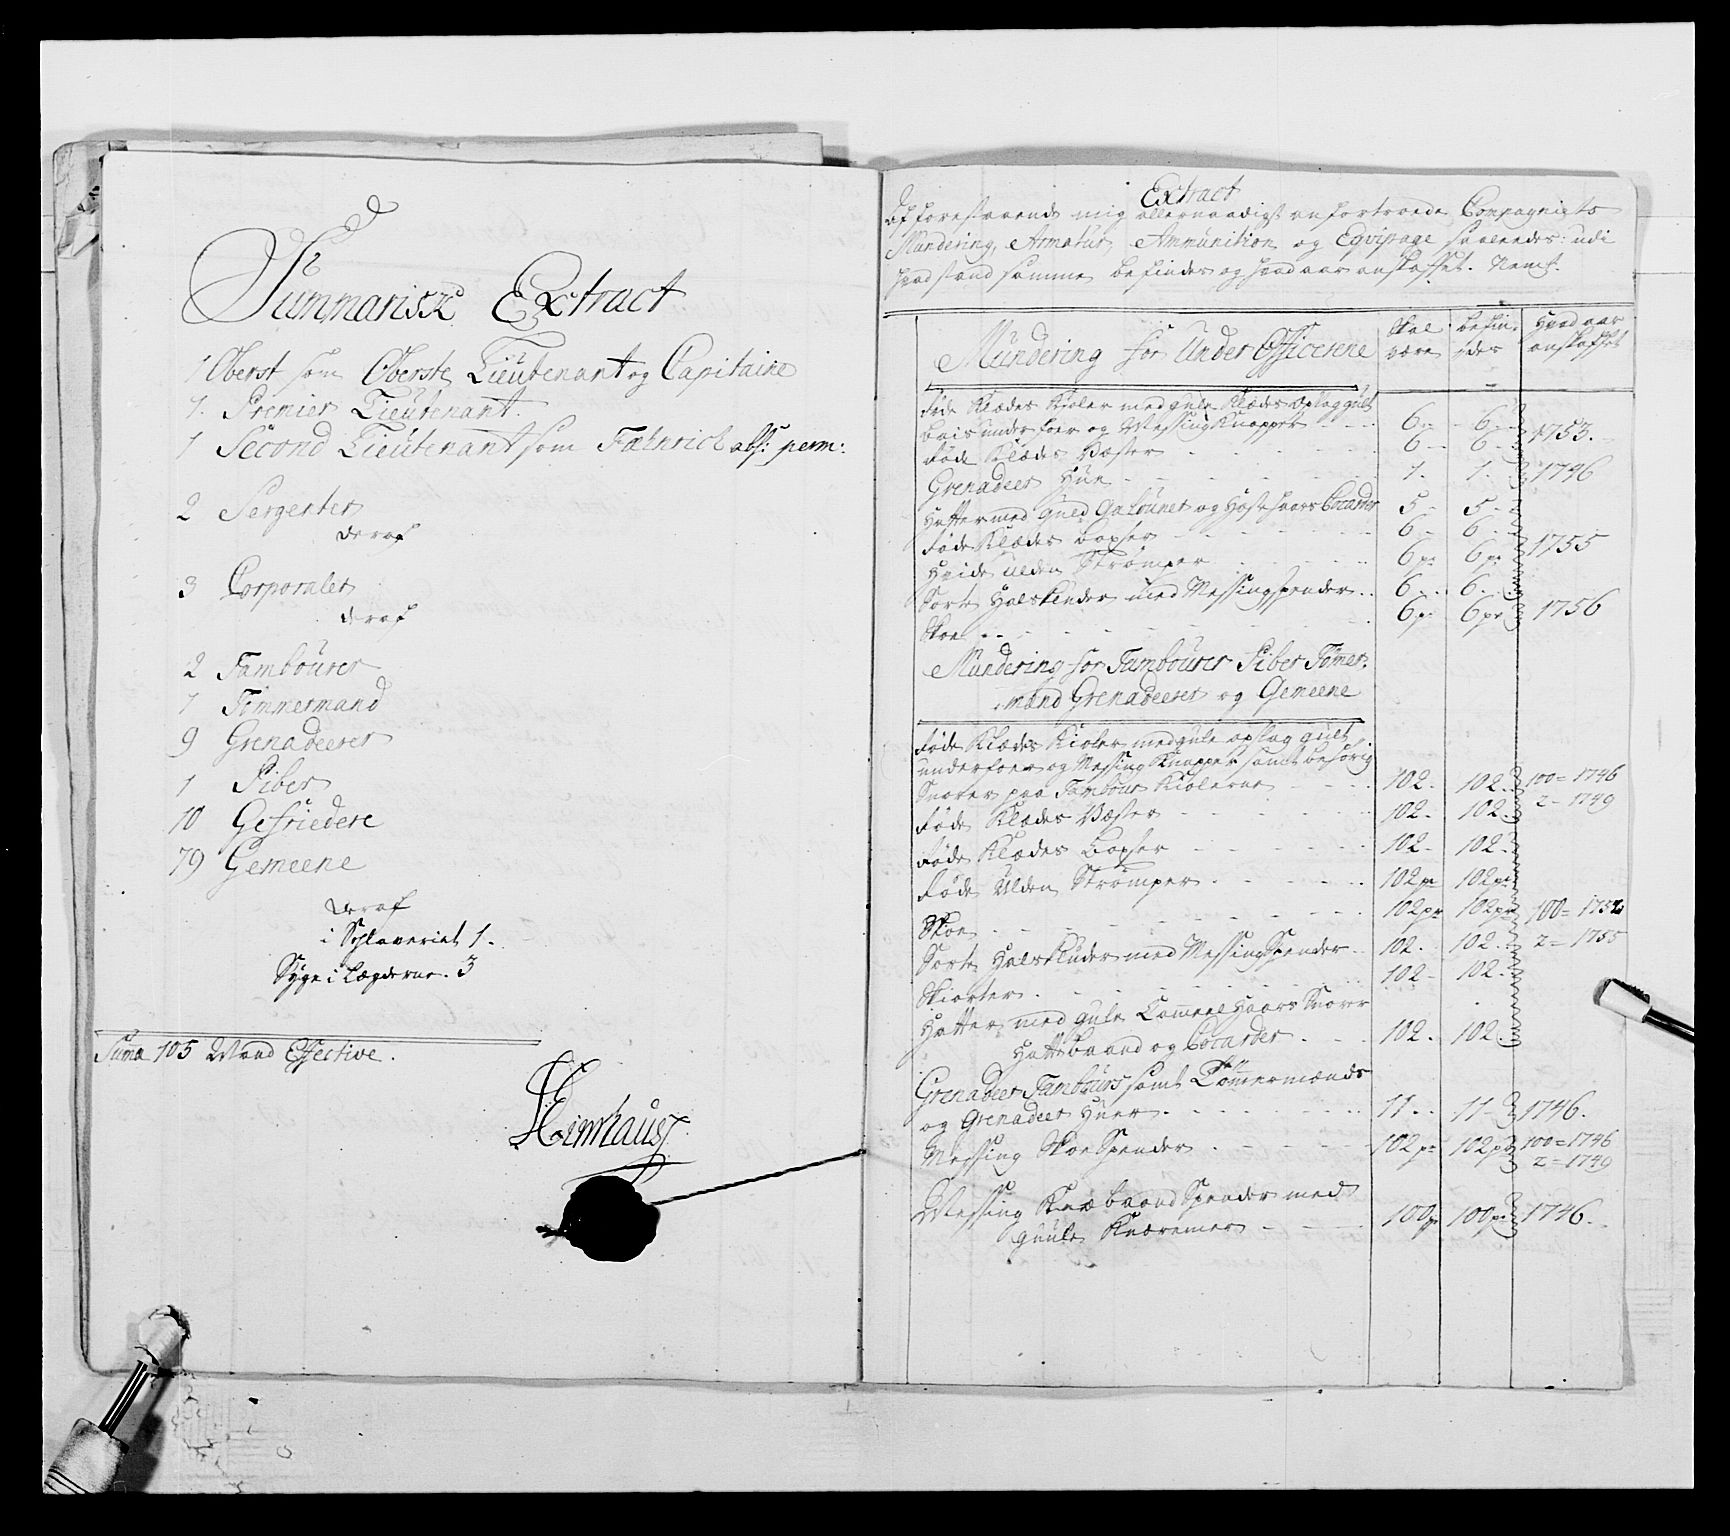 Summarisk Extract
1 Oberst som Oberste Lieutenant og Capitaine
1. Premier Lieutenant.
1 Second Lieutenant som Fæhnrich abs: perm:
2 Sergenter
deraf
3 Corporaler
deraf
2 Tambourer
1 Timmermand
9 Grenadeerer
1 Piber
10 Gefriedere
79 Gemeene
deraf
i Schlaveriet 1.
Syge i Lægderne. 3
Suma 105 Mand Effective.
Extract
Af forestaaende mig allernaadigst anfortroede Compagniets
Mundering, Armatur, Ammunition og Eqvipage saaledes: udi
hvad stand samme befindes og hvad aar anskaffet. Neml.
Mundering for Under Officerene
Skal være
befindes
Hvad aar anskaffet
Røde Klædes Kioler med gule Klædes Opslag gult
bais under foer og Messing Knapper 6 6
Røde Klædes Væster 6 6 1753.
Grenadeer Hue 1. 1. 1746
Hatter med Guld Galouner og Hæstehaars Cocarder 5 5
Røde Klædes Boxser 6 6 1755
Hvide ulden Strømper 6 pr 6 pr
Sorte Halskluder med Messingspender 6 6
Skoe 6 pr 6 pr 1756
Mundering for Tambourer Piber Tømer-
mand Grenadeerer og Gemeene
Røde Klædes Kioler med gule opslag gult
underfoer og Messing Knapper samt behørig
Snorer paa Tambour Kiolerne 102. 102. 100 = 1746
2 = 1749
Røde Klædes Væster 102. 102.
Røde Klædes Boxser 102. 102.
Røde Ulden Strømper 102 pr 102 pr
Skoe 102 pr 102 pr 100 =
Sorte Halskluder med Messing Spender 102. 102. 2 = 1755
Skiorter 102 102.
Hatter med gule Cameel Haars Snorer
Hattebaand og Cocarder 102. 102.
Grenadeer Tambours samt Tømmermænds
og Grenadeer Huer 11 11 1746.
Messing Skoe Spender 102 pr 102 pr 100 = 1746
2 = 1749
Messing Knæbaand Spender med
guule Knæremer 100 pr 100 pr 1746.